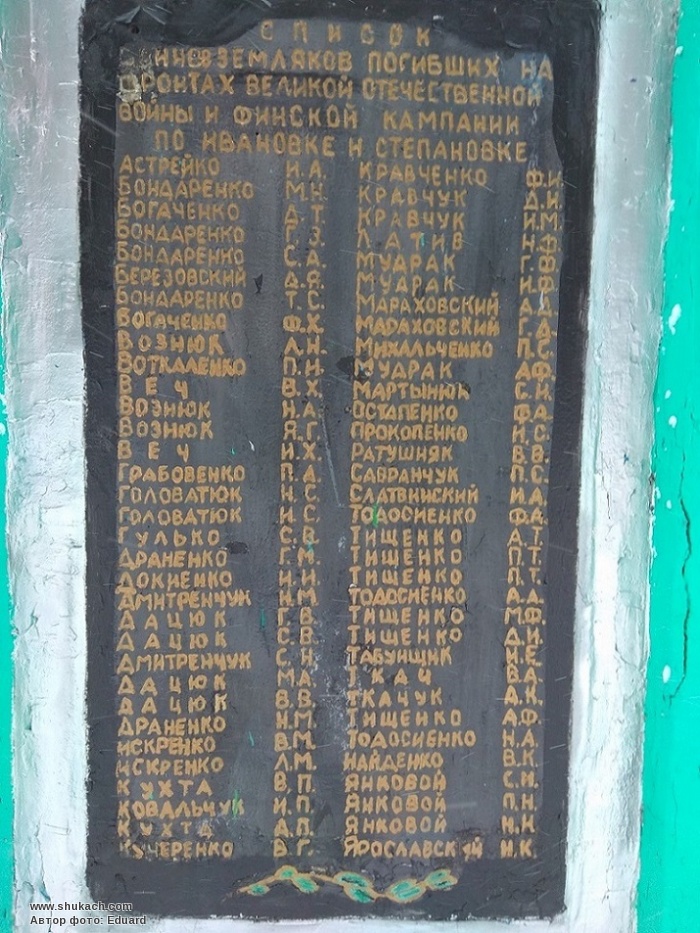 СПИСОК
ВОИНОВ ЗЕМЛЯКОВ ПОГИБШИХ НА
ФРОНТАХ ВЕЛИКОЙ ОТЕЧЕСТВЕННОЙ
ВОЙНЫ И ФИНСКОЙ КАМПАНИИ
ПО ИВАНОВКЕ И СТЕПАНОВКЕ
АСТРЕЙКО И.А.
БОНДАРЕНКО М.Н.
БОГАЧЕНКО Д.Т
БОНДАРЕНКО Г.З.
БОНДАРЕНКО С.А.
БЕРЕЗОВСКИЙ Д.Я.
БОНДАРЕНКО Т.С.
БОГАЧЕНКО Ф.Х.
ВОЗНЮК Л.Н.
ВОТКАЛЕНКО П.И.
ВЕЧ В.Х.
ВОЗНЮК Н.А.
ВОЗНЮК Я.Г.
ВЕЧ И.Х.
ГРАБОВЕНКО П.Д.
ГОЛОВАТЮК Н.С.
ГОЛОВАТЮК И.С.
ГУЛЬКО С.В.
ДРАНЕНКО Г.М.
ДОКИЕНКО И.И.
ДМИТРЕНЧУК Н.М.
ДАЦЮК Г.В.
ДАЦЮК С.В.
ДМИТРЕНЧУК С.Н.
ДАЦЮК М.А.
ДАЦЮК В.В.
ДРАНЕНКО Н.М.
ИСКРЕНКО В.М.
ИСКРЕНКО Л.М.
КУХТА В.П.
КОВАЛЬЧУК И.П.
КУХТА Д.П.
КУЧЕРЕНКО В.Г.
КРАВЧЕНКО Ф.И.
КРАВЧУК Д.И.
КРАВЧУК И.М.
ЛАТИВ Н.Ф.
МУДРАК Г.В.
МУДРАК И.Ф.
МАРАХОВСКИЙ А.Д.
МАРАХОВСКИЙ Г.Д.
МИХАЛЬЧЕНКО П.С.
МУДРАК А.Ф.
МАРТЫНЮК С.Н.
ОСТАПЕНКО Ф.А.
ПРОКОПЕНКО И.С.
РАТУШНЯК В.В.
САВРАНЧУК П.С.
СЛАТВИНСКИЙ И.А.
ТОДОСИЕНКО Ф.А.
ТИЩЕНКО А.Т.
ТИЩЕНКО П.Т.
ТИЩЕНКО П.Т.
ТОДОСИЕНКО А.Д.
ТИЩЕНКО М.Ф.
ТИЩЕНКО Д.И.
ТАБУНЩИК Н.Е.
ТКАЧ В.А.
ТКАЧУК Д.К.
ТИЩЕНКО А.Ф.
ТОДОСИЕНКО Н.А.
НАЙДЕНКО В.К.
ЯНКОВОЙ С.И.
ЯНКОВОЙ П.Н.
ЯНКОВОЙ Н.Н.
ЯРОСЛАВСКИЙ И.К.
www.shukach.com
Автор фото: Eduard